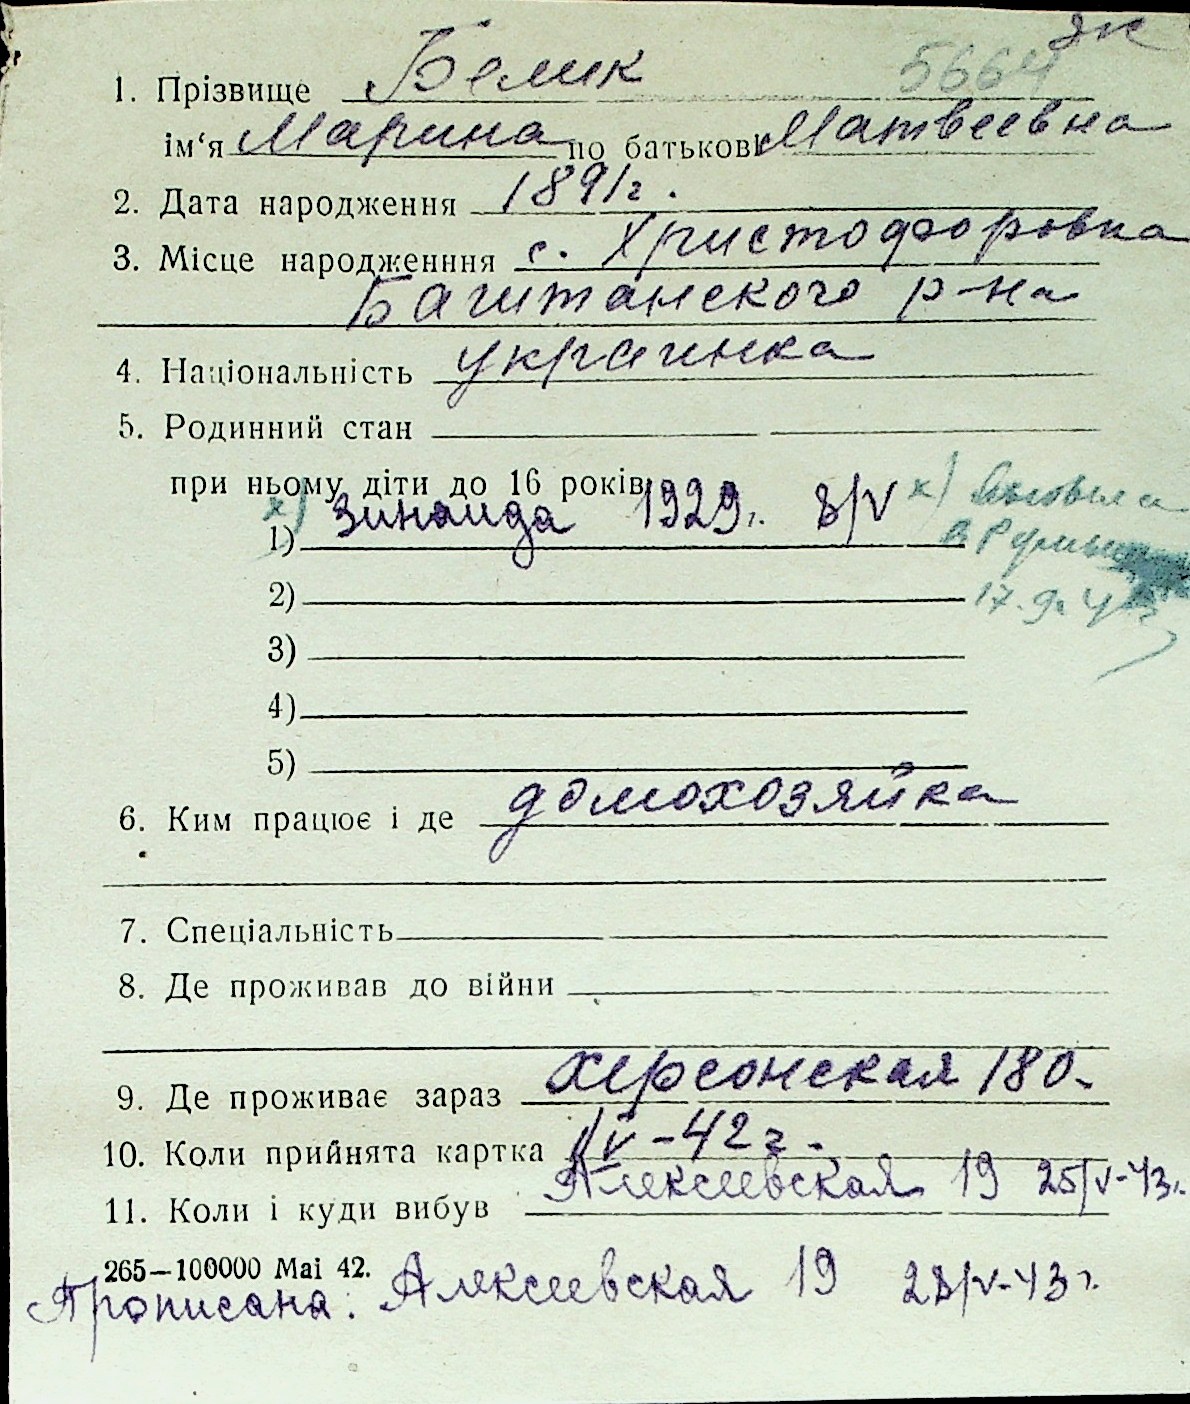 эк
5664
1. Прізвище Белик
ім'я Марина по батькові Матвеевна
2. Дата народження 1891г.
3. Місце народженння с. Христофоровка
Баштанского р-на
4. Національність украинка
5. Родинний стан
при ньому діти до 16 років
х) 1) Зинаида 1929г. 8/V х) выбыла
в Румын
2) 17.9.4
3)
4)
5)
6. Ким працює і де домохозяйка
7. Спеціальність
8. Де проживав до війни
9. Де проживає зараз Херсонская 180
10. Коли прийнята картка V-42г.
11. Коли і куди вибув Алексеевская 19 25/V-43г.
265—100000 Mai 42.
Прописана: Алексеевская 19 28/V-43г.